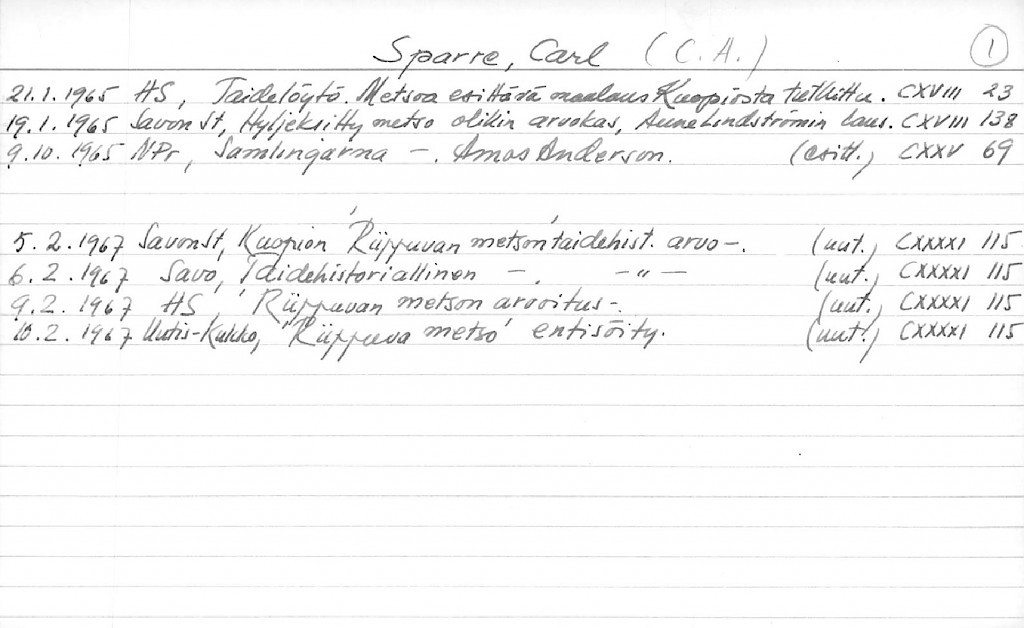 Sparre, Carl (C.A.) 1
21.1.1965 HS, Taidelöytö. Metsoa esittävä maalaus Kuopiosta tutkittu. CXVIII 23
19.1.1965 Savon St, Hyljeksitty metso olikin arvokas, Aune Lindströmin laus. CXVIII 138
9.10.1965 NPr, Samlingarna -. Amos Anderson. (esitt.) CXXV 69
5.2.1967 SavonSt, Kuopion 'Riippuvan metson' taidehist. arvo -. (uut.) CXXXXI 115
6.2.1967 Savo, Taidehistoriallinen - , -"- (uut.) CXXXXI 115
9.2.1967 HS 'Riippuvan metson arvoitus -. (uut.) CXXXXI 115
10.2.1967 Uutis-Kukko, 'Riippuva metso' entisöity. (uut.) CXXXXI 115